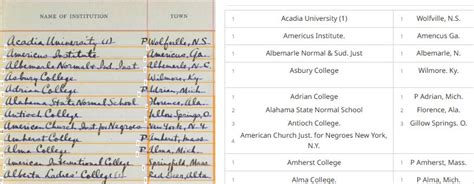 NAME OF INSTITUTION TOWN
Acadia University (1) P Wolfville, N.S.
Americus Institute Americus, Ga.
Albemarle Normal & Ind. Inst Albemarle, N.C.
Asbury College Wilmore, Ky.
Adrian College P Adrian, Mich.
Alabama State Normal School Florence, Ala.
Antioch College Yellow Springs, O.
American Church Inst. for Negroes New York, N.Y.
Amherst College P Amherst, Mass.
Alma College P Alma, Mich.
American International College Springfield, Mass.
Alberta Ladies' College Red Deer, Alta.
1 Acadia University (1) 1 Wolfville, N.S.
1 Americus Institute. 1 Amencus Ga.
1 Albemarle Normal & Sud. Just 1 Albemarle, N.
1 Asbury College 1 Wilmore. Ky.
1 Adrian College 1 P Adrian, Mich.
2 Alabama State Normal School 2 Florence, Ala.
3 Antioch College. 3 Gillow Springs. O.
4 American Church Just. for Negroes New York,
N.Y.
1 Amherst College 1 P Amherst, Mass.
1 Alma College 1 P Alma, Mich.